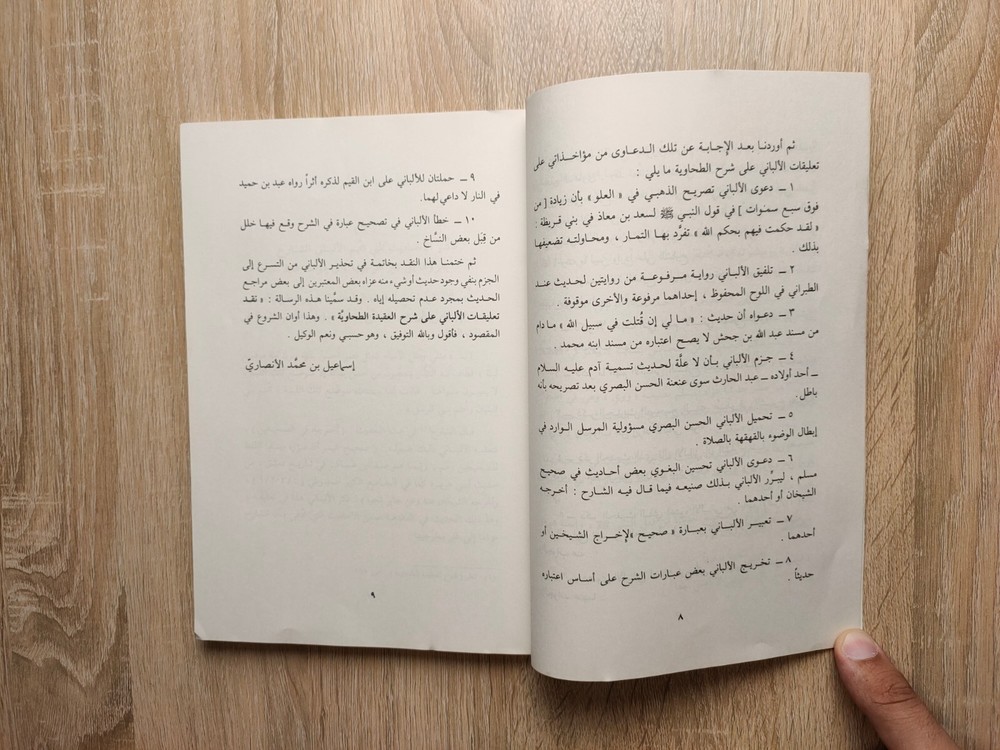 ثم أوردنا بعد الإجابة عن تلك الدعاوى من مؤاخذاتي على
تعليقات الألباني على شرح الطحاوية ما يلي :
١ ــ دعوى الألباني تصريح الذهبي في « العلو » بأن زيادة [ من
فوق سبع سمٰوات ] في قول النبي ﷺ لسعد بن معاذ في بني قريظة :
« لقد حكمت فيهم بحكم الله » تفرَّد بها التمار ، ومحاولته تضعيفها
بذلك .
٢ ــ تلفيق الألباني رواية مرفوعة من روايتين لحديث عند
الطبراني في اللوح المحفوظ ، إحداهما مرفوعة والأخرى موقوفة .
٣ ــ دعواه أن حديث : « ما لي إن قُتلت في سبيل الله » ما دام
من مسند عبد الله بن جحش لا يصح اعتباره من مسند ابنه محمد .
٤ ــ جزم الألباني بأن لا علَّة لحديث تسمية آدم عليه السلام
ــ أحد أولاده ــ عبد الحارث سوى عنعنة الحسن البصري بعد تصريحه بأنه
باطل .
٥ ــ تحميل الألباني الحسن البصري مسؤولية المرسل الوارد في
إبطال الوضوء بالقهقهة بالصلاة .
٦ ــ دعوى الألباني تحسين البغوي بعض أحاديث في صحيح
مسلم ، ليبرِّر الألباني بذلك صنيعه فيما قال فيه الشارح : أخرجه
الشيخان أو أحدهما .
٧ ــ تعبير الألباني بعبارة « صحيح » لإخراج الشيخين أو
أحدهما .
٨ ــ تخريج الألباني بعض عبارات الشرح على أساس اعتباره
حديثاً .
٨
٩ ــ حملتان للألباني على ابن القيم لذكره أثراً رواه عبد بن حميد
في النار لا داعي لهما .
١٠ ــ خطأ الألباني في تصحيح عبارة في الشرح وقع فيها خلل
من قِبَل بعض النسَّاخ .
ثم ختمنا هذا النقد بخاتمة في تحذير الألباني من التسرع إلى
الجزم بنفي وجود حديث أو شيء منه عزاه بعض المعتبرين إلى بعض مراجع
الحديث بمجرد عدم تحصيله إياه . وقد سمَّينا هذه الرسالة : « نقد
تعليقات الألباني على شرح العقيدة الطحاويَّة » . وهذا أوان الشروع في
المقصود ، فأقول وبالله التوفيق ، وهو حسبي ونعم الوكيل .
إسماعيل بن محمَّد الأنصاريّ
٩